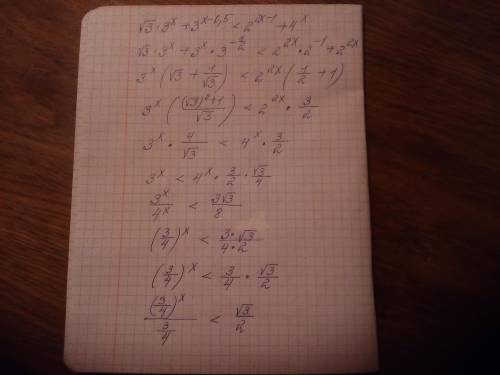 √3 · 3^x + 3^(x-0,5) < 2^(2x-1) + 4^x
√3 · 3^x + 3^x · 3^(-1/2) < 2^(2x) · 2^(-1) + 2^(2x)
3^x (√3 + 1/√3) < 2^(2x) (1/2 + 1)
3^x (((√3)^2+1)/√3) < 2^(2x) · 3/2
3^x · 4/√3 < 4^x · 3/2
3^x < 4^x · 3/2 · √3/4
3^x/4^x < 3√3/8
(3/4)^x < (3·√3)/(4·2)
(3/4)^x < 3/4 · √3/2
(3/4)^x / (3/4) < √3/2